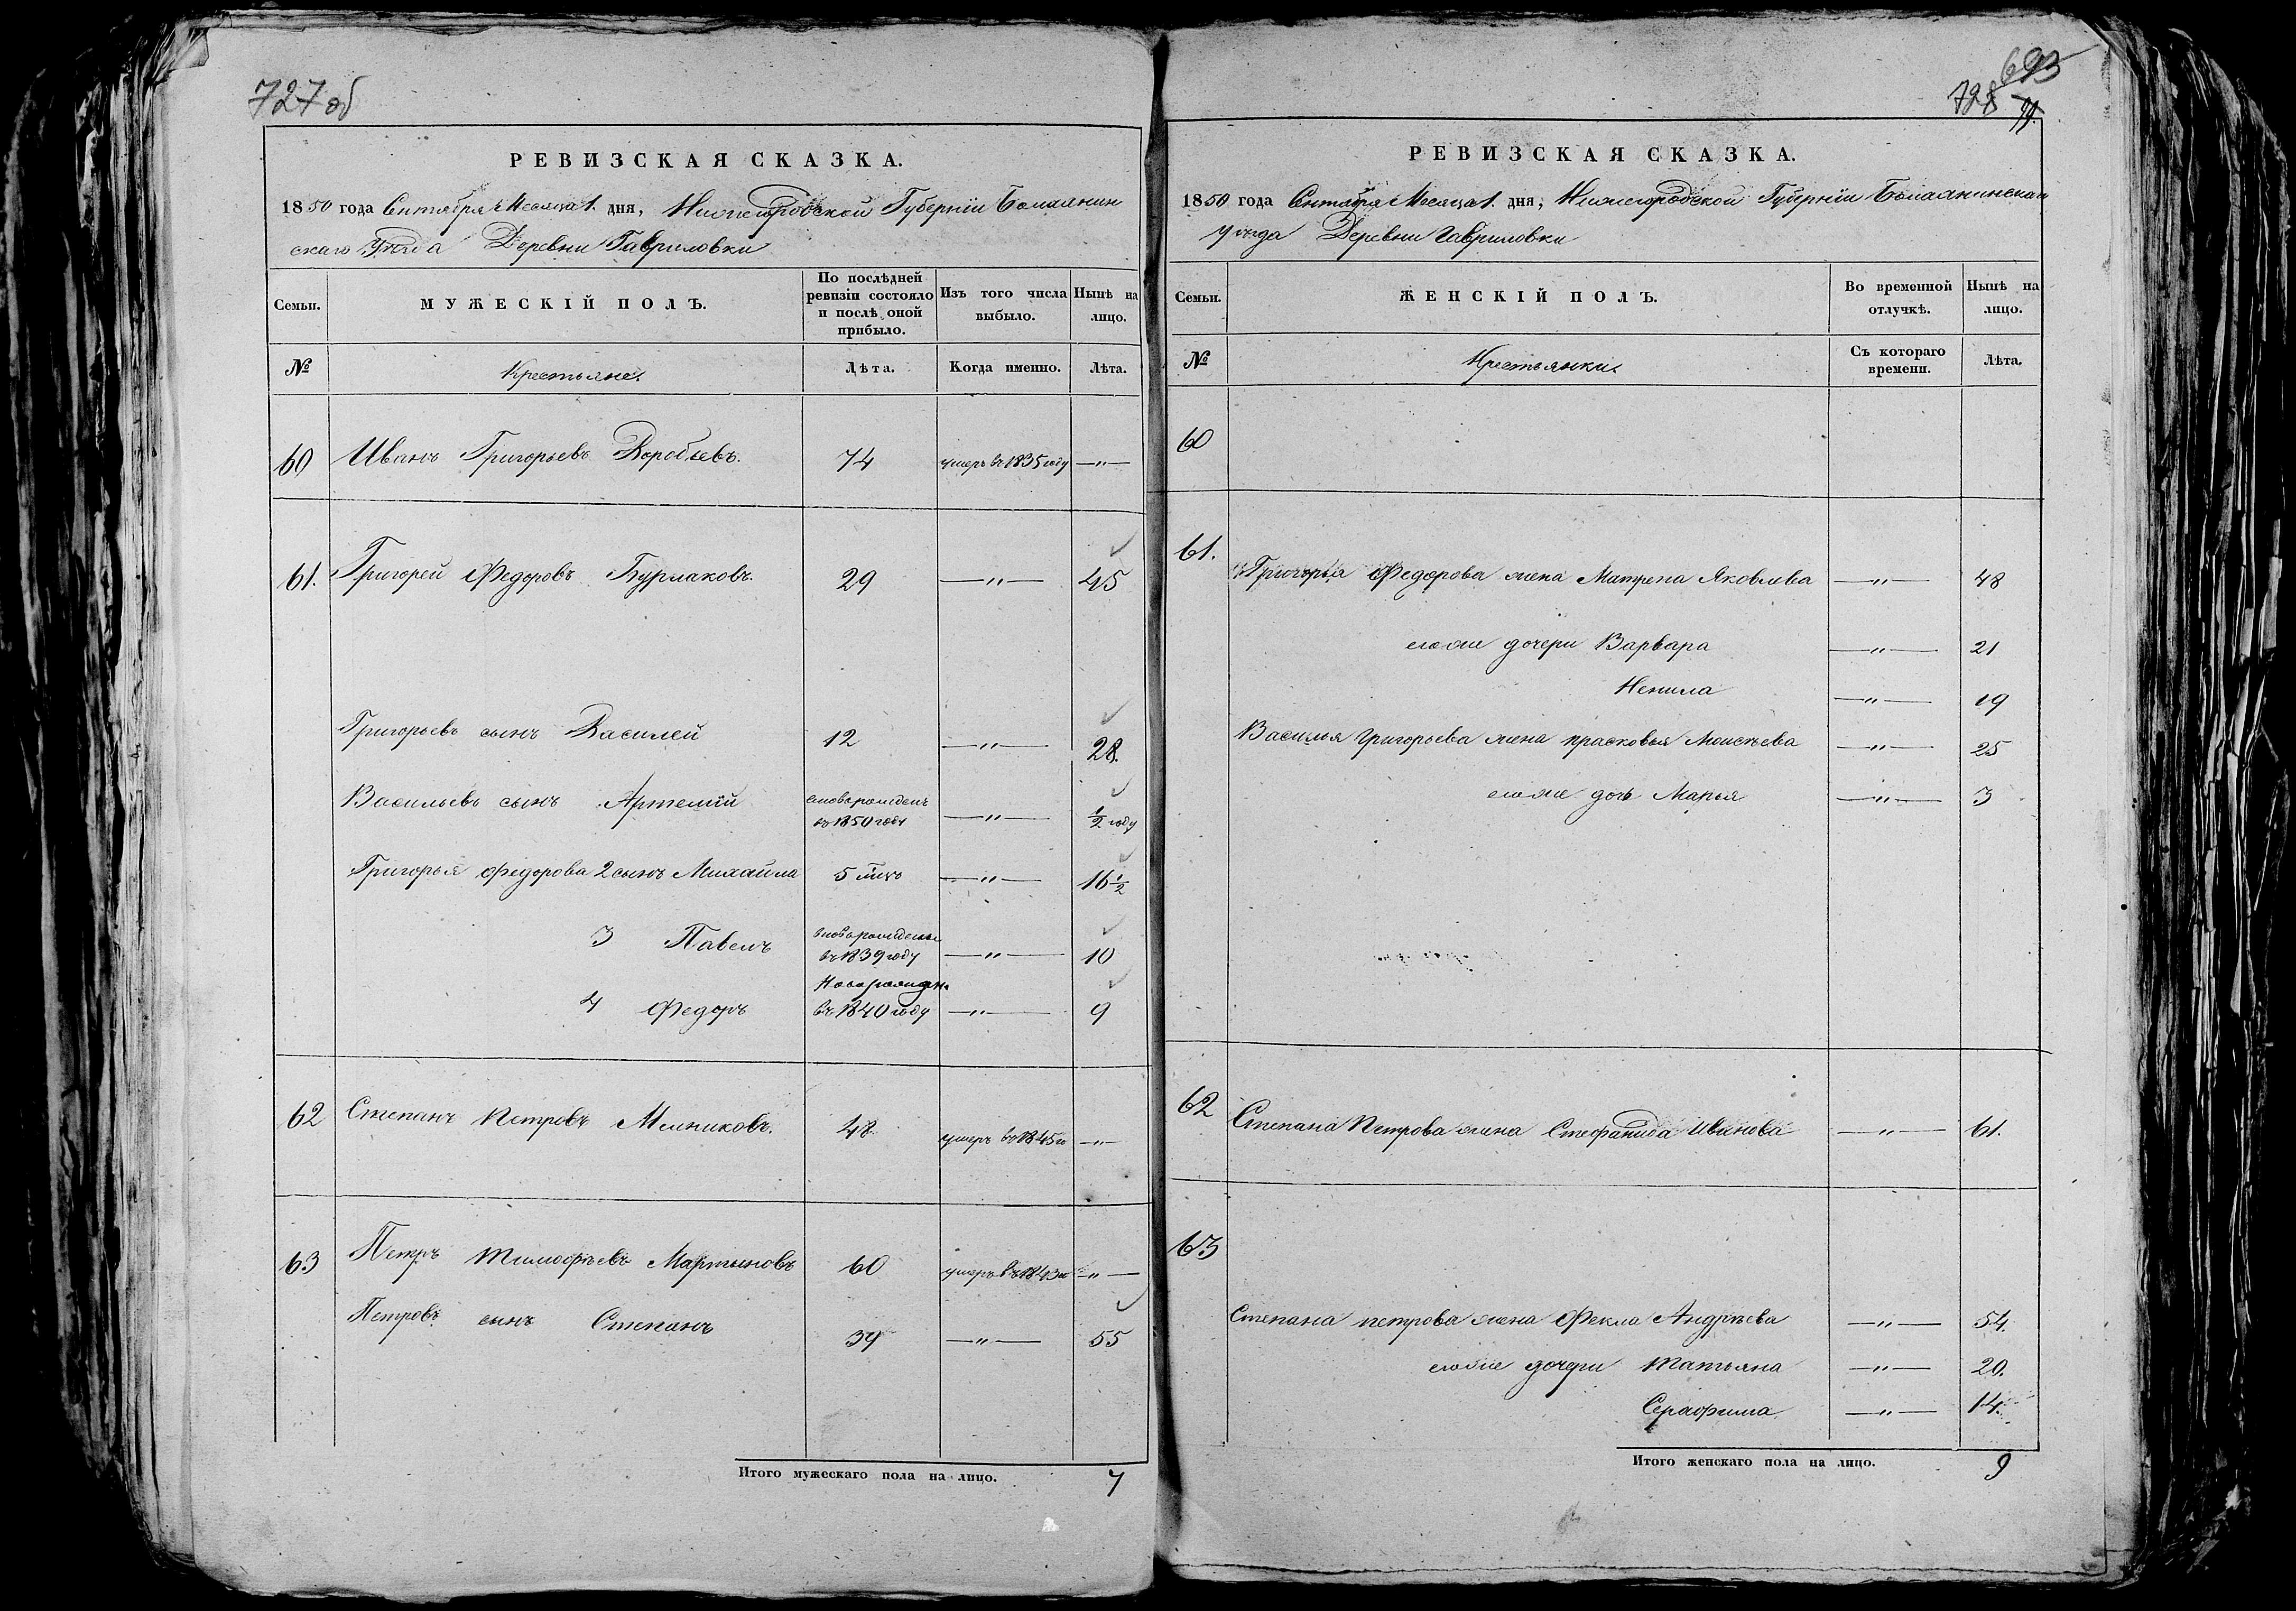 727 об
РЕВИЗСКАЯ СКАЗКА.
1850 года Сентября Месяца 1. дня, Нижегородской Губернiи Балахнин
скаго Уѣзда Деревни Гавриловки
Семьи. МУЖЕСКІЙ ПОЛЪ. По послѣдней ревизіи состояло и послѣ оной прибыло. Изъ того числа выбыло. Нынѣ на лицо.
№ Крестьяне. Лѣта. Когда именно. Лѣта.
60 Иванъ Григорьевъ Воробьевъ. 74 умеръ въ 1835 году —"—
61. Григорей Федоровъ Бурлаковъ. 29 —"— 45
Григорьевъ сынъ Василей 12 —"— 28.
Васильевъ сынъ Артемій вновърожденъ въ 1850 году —"— ½ году
Григорья Федорова 2 сынъ Михайла —"— 16½
3 Павелъ вновьрожденъ въ 1839 году —"— 10
4 Федоръ Новорожден. въ 1840 году —"— 9
62 Степанъ Петровъ Мелниковъ. 48 умеръ въ 1845 го —"—
63 Петръ Тимофѣевъ Мартыновъ 60 умеръ въ 1843 го —"—
Петровъ сынъ Степанъ 39 —"— 55
Итого мужескаго пола на лицо. 7
693
728
99.
РЕВИЗСКАЯ СКАЗКА.
1850 года Сентября Месяца 1. дня, Нижегородской Губернiи Балахнинскаго
уѣзда Деревни Гавриловки
Семьи. ЖЕНСКІЙ ПОЛЪ. Во временной отлучкѣ. Нынѣ на лицо.
№ Крестьянки. Съ котораго времени. Лѣта.
60
61. Григорья Федорова жена Матрена Яковлева —"— 48
егоже дочери Варвара —"— 21
Ненила —"— 19
Василья Григорьева жена прасковья Моисѣева —"— 25
егоже дочь Марья —"— 3
62 Степана Петрова жена Стефанида Иванова —"— 61.
63
Степана петрова жена Фекла Андрѣева —"— 54.
егоже дочери Татьяна —"— 20.
Серафима —"— 14.
Итого женскаго пола на лицо. 9